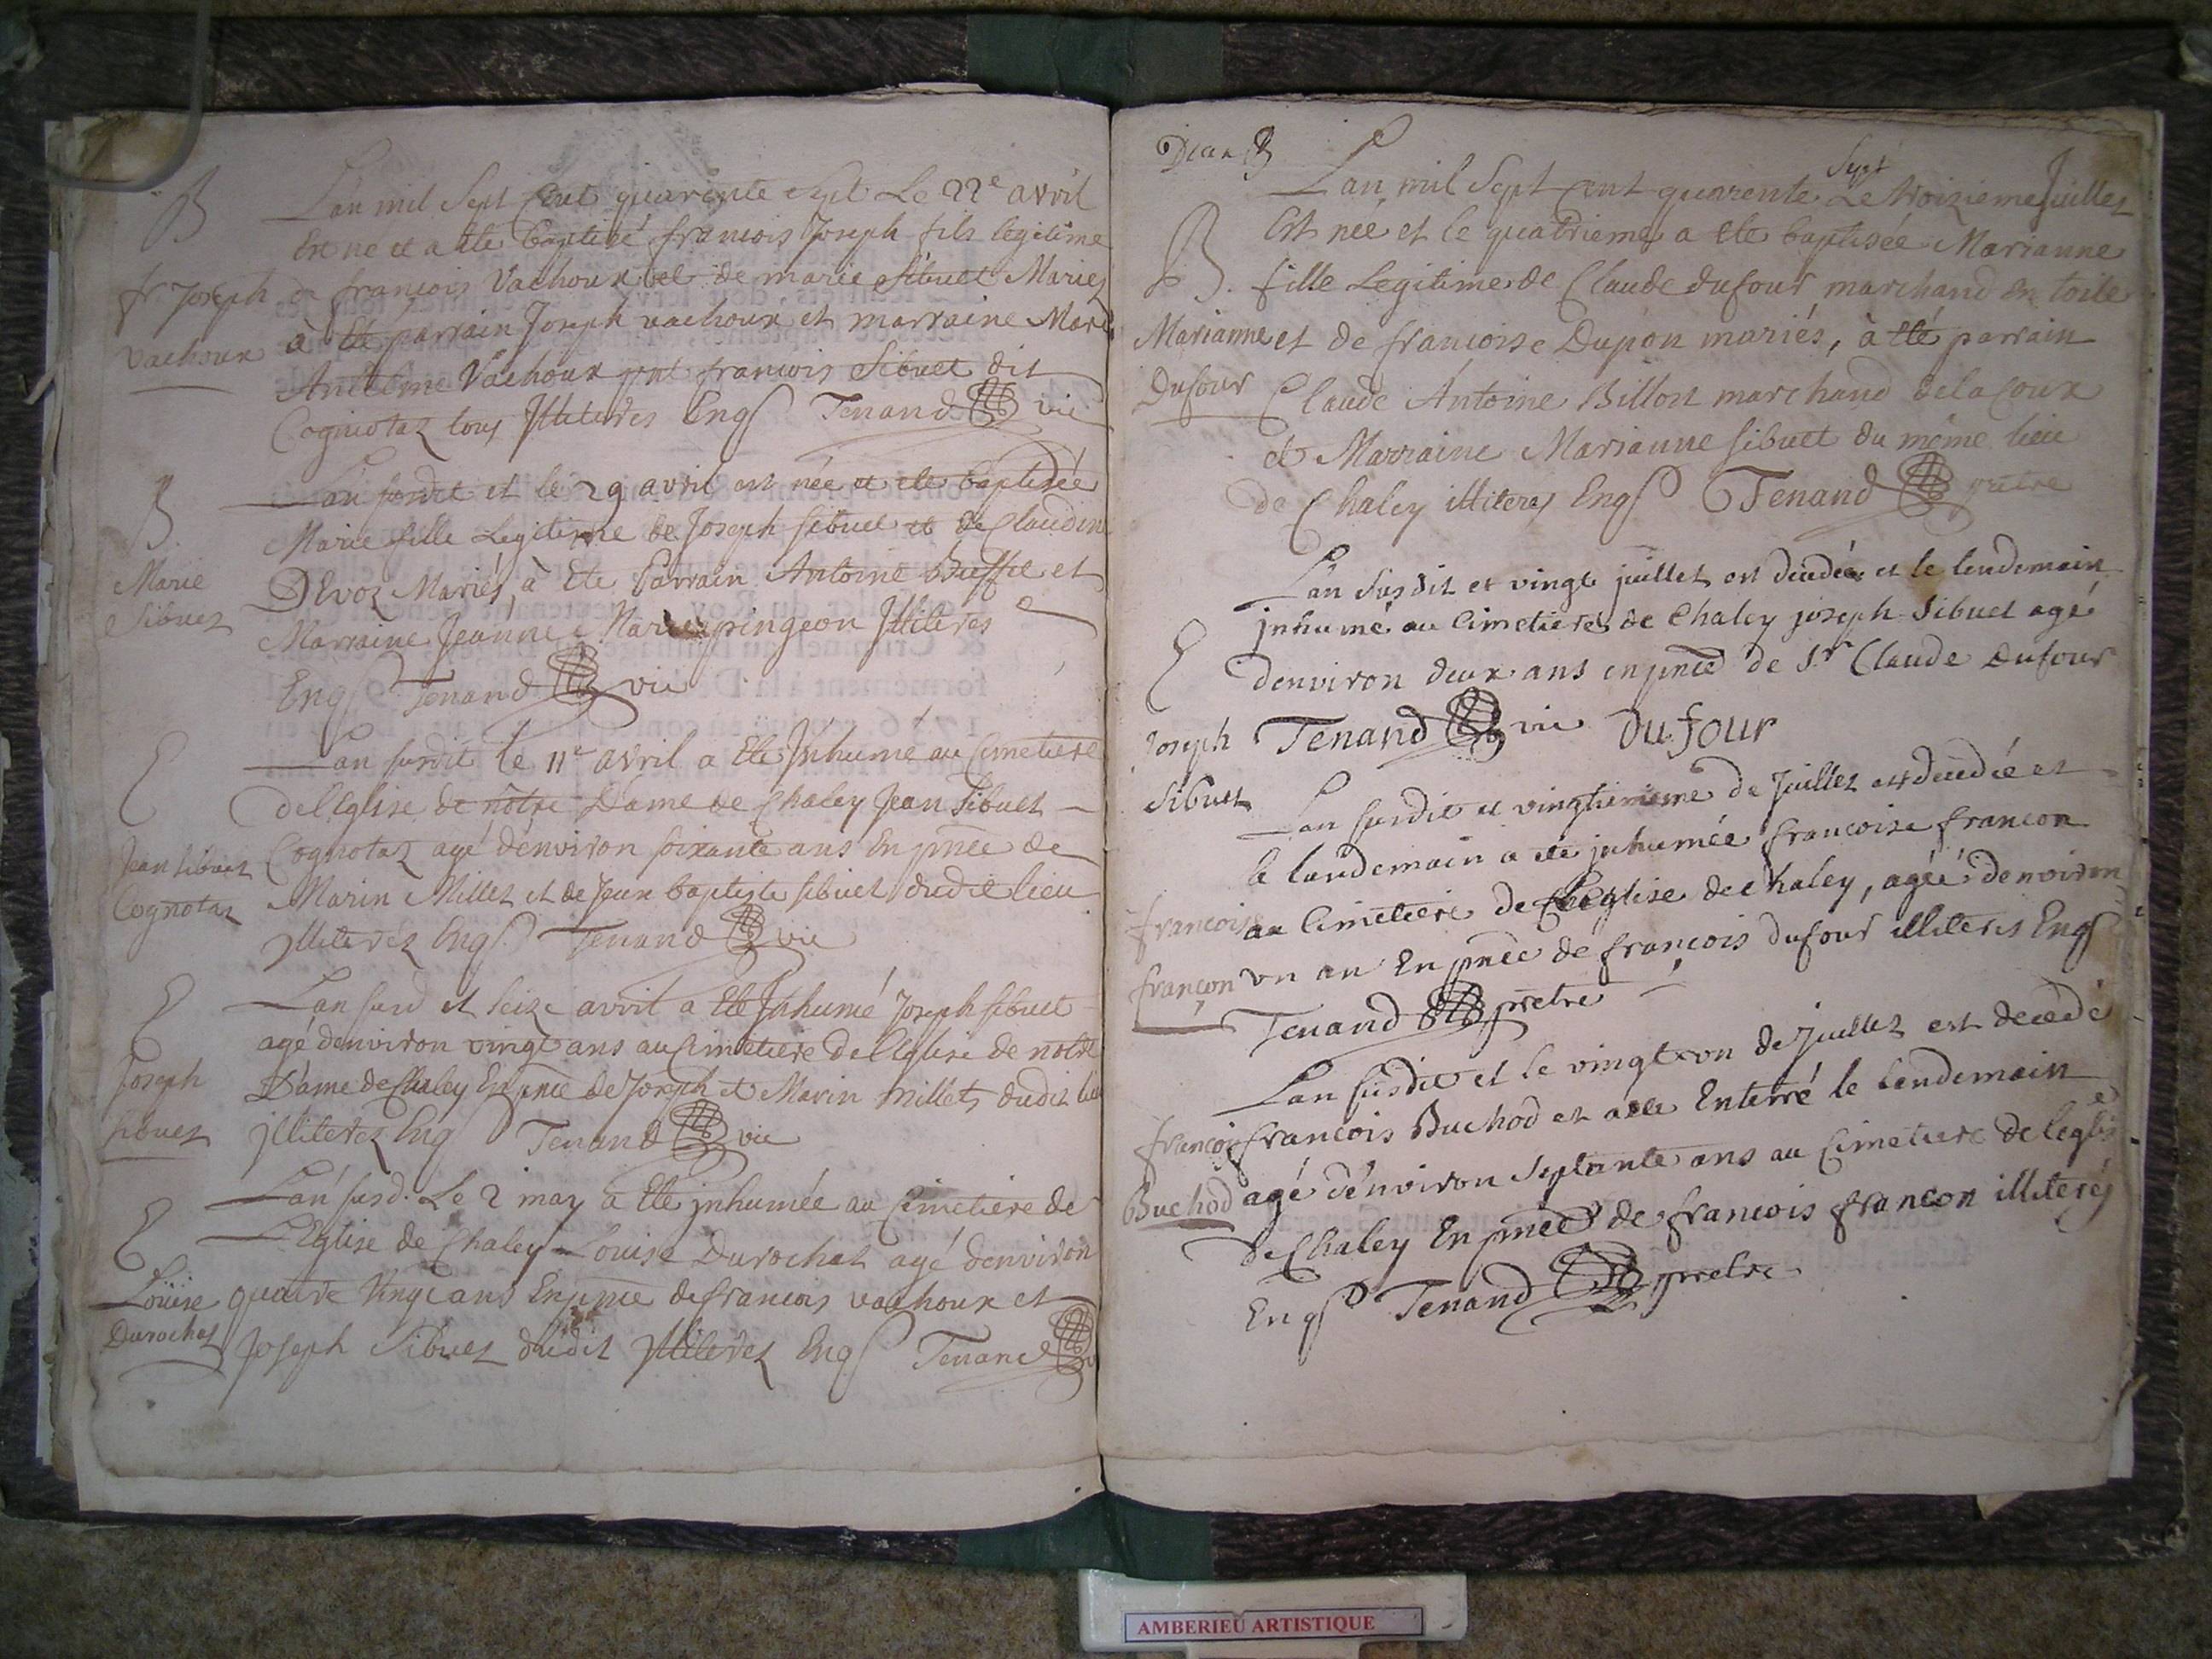 B
fr. Joseph
Vachoux
L'an mil Sept Cent quarente Sept Le 22e avril
Est ne et a ete baptisé francois Joseph fils legitime
de francois Vachoux et de marie Sibuet Mariez
à été parrain Joseph vachoux et marraine Marie
Anthelme Vachoux pnt francois Sibuet dit
Cogniotaz tous Illiteres Enqs Tenand vic
B.
Marie
Sibuez
L'an susdit et le 29 avril est née et ete baptisée
Marie fille Legitime de Joseph sibuet et de Claudine
Devoz Mariés, à Ete Parrain Antoine Buffie et
Marraine Jeanne Marie pingeon Illiteres
Enqs Tenand vic
E
Jean sibuet
Cognotaz
L'an susdit le 11e avril a Ete Inhumé au Cimetiere
de l'Eglise de nôtre Dame de Chaley Jean Sibuet
Cognotaz agé d'environ soixante ans En pnce de
Marin Millet et de Jean baptiste sibuet dudit lieu
Illiterez Enqs. Tenand vic
E
Joseph
sibuez
L'an susd et seize avril a Ete Inhumé Joseph sibuet
agé denviron vingt ans au Cimetiere de l'Eglise de notre
Dame de Chaley En pnce de Joseph et Marin Millet dudit lieu
Illiterez Enqs Tenand vic
E
Louise
Durochat
L'an susd. Le 2 may a Ete inhumée au Cimetiere de
L'Eglise de Chaley Louise Durochat agé denviron
quatre Vingt ans En pnce de francois vachoux et
Joseph Sibuez dudit Illiterez Enqs Tenand
B.
Marianne
Dufour
L'an mil Sept Cent quarente Sept Le troizieme Juillet
Est neé et le quatrieme a ete baptisée Marianne
fille Legitime de Claude dufour marchand en toile
et de francoise Dupon mariés, à été parrain
Claude Antoine Billon marchand de la Coux
et Marraine Marianne sibuet du même lieu
de Chaley illiteres Enqs Tenand prêtre
E
Joseph
Sibuet
L'an Susdit et vingt juillet est décédé et le lendemain
inhumé au Cimetiere de Chaley joseph Sibuet agé
denviron deux ans en pnce de Sr Claude Dufour
Tenand vic Dufour
francoise
françon
L'an susdit et vingtiemme de Juillet est décédée et
le landemain a ete inhumée francoise francon
au Cimetiere de l'Eglise de Chaley, agée denviron
un an En pnce de françois dufour illiteres Enqs
Tenand prêtre
françois
Buchod
L'an susdit et le vingt un de Juillet est decedé
francois Buchod et a ete Enterré le lendemain
agé d'environ Septante ans au Cimetiere de leglise
de Chaley En pnce de francois francon illiterés
Enqs Tenand prêtre
AMBERIEU ARTISTIQUE